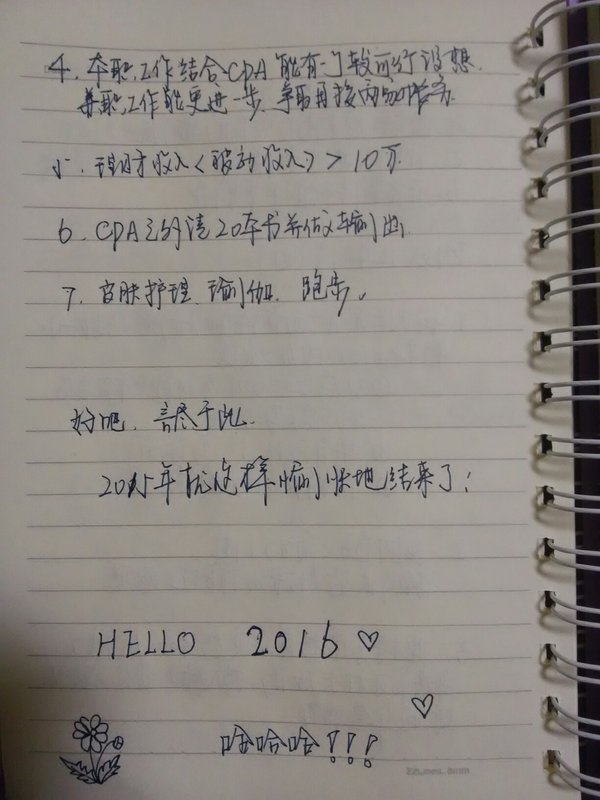 4. 本职工作结合CPA能有一个较可行设想.
兼职工作能更进一步, 争取再接两
5. 理财收入<被动收入> > 10万.
6. CPA之外读20本书并做读书输出
7. 皮肤护理、瑜伽、跑步。
好吧, 言尽于此.
2015年就这样愉快地结束了!
HELLO 2016 ♡
♡
哈哈哈!!!